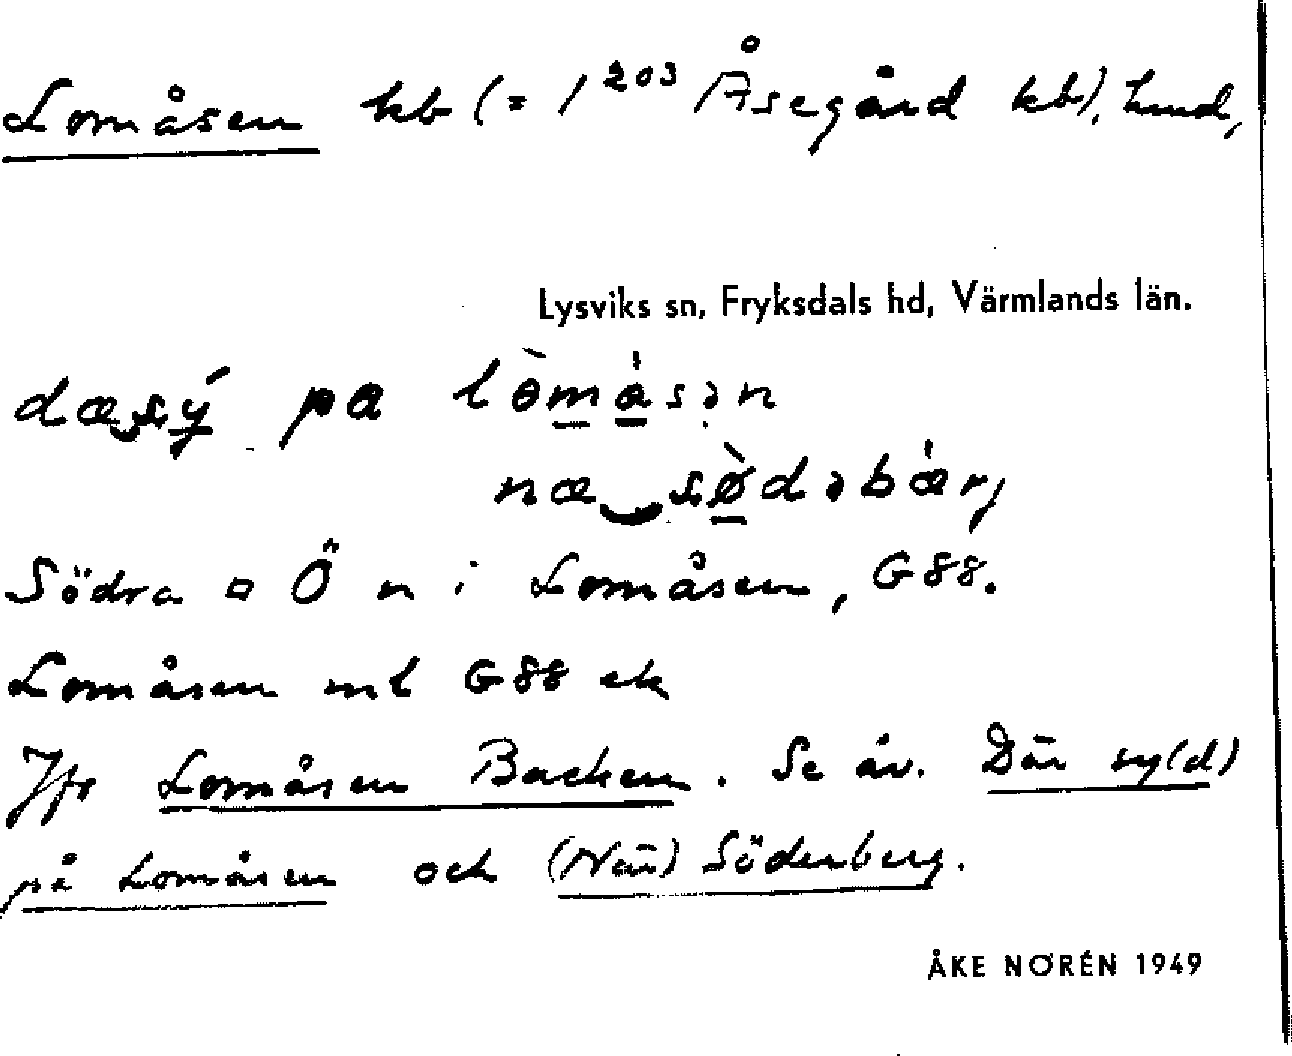 Lomåsen kb (= 1²⁰³ Åsegård kb), hmd,
Lysviks sn, Fryksdals hd, Värmlands län.
dæ‿sý pa lòmåsən
næ‿sødəbærj
Södra □ Ö n i Lomåsen, G88.
Lomåsen ml G88 ek
Jfr Lomåsen Backen. Se äv. Där sy(d)
på Lomåsen och (När) Söderberg.
ÅKE NORÉN 1949